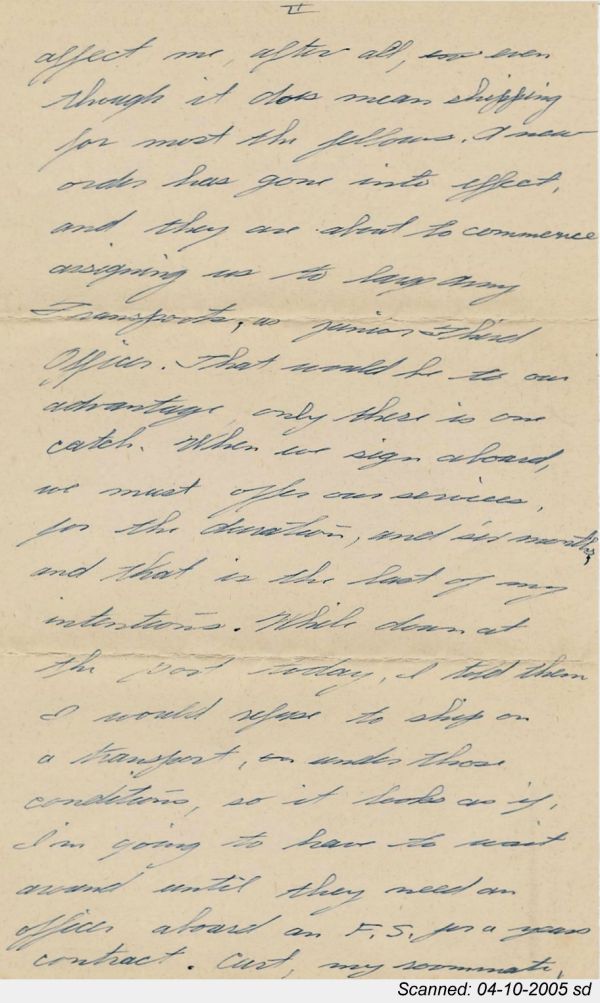 II
affect me, after all, even
though it does mean shipping
for most the fellows. A new
order has gone into effect,
and they are about to commence
assigning us to large Army
Transports, as junior Third
Officer. That would be to our
advantage, only there is one
catch. When we sign aboard,
we must offer our services,
for the duration, and six months,
and that is the last of my
intentions. While down at
the port today, I told them
I would refuse to ship on
a transport, under those
conditions, so it looks as if,
I'm going to have to wait
around until they need an
officer aboard an F.S. for a years
contract. Curt, my roommate,
Scanned: 04-10-2005 sd